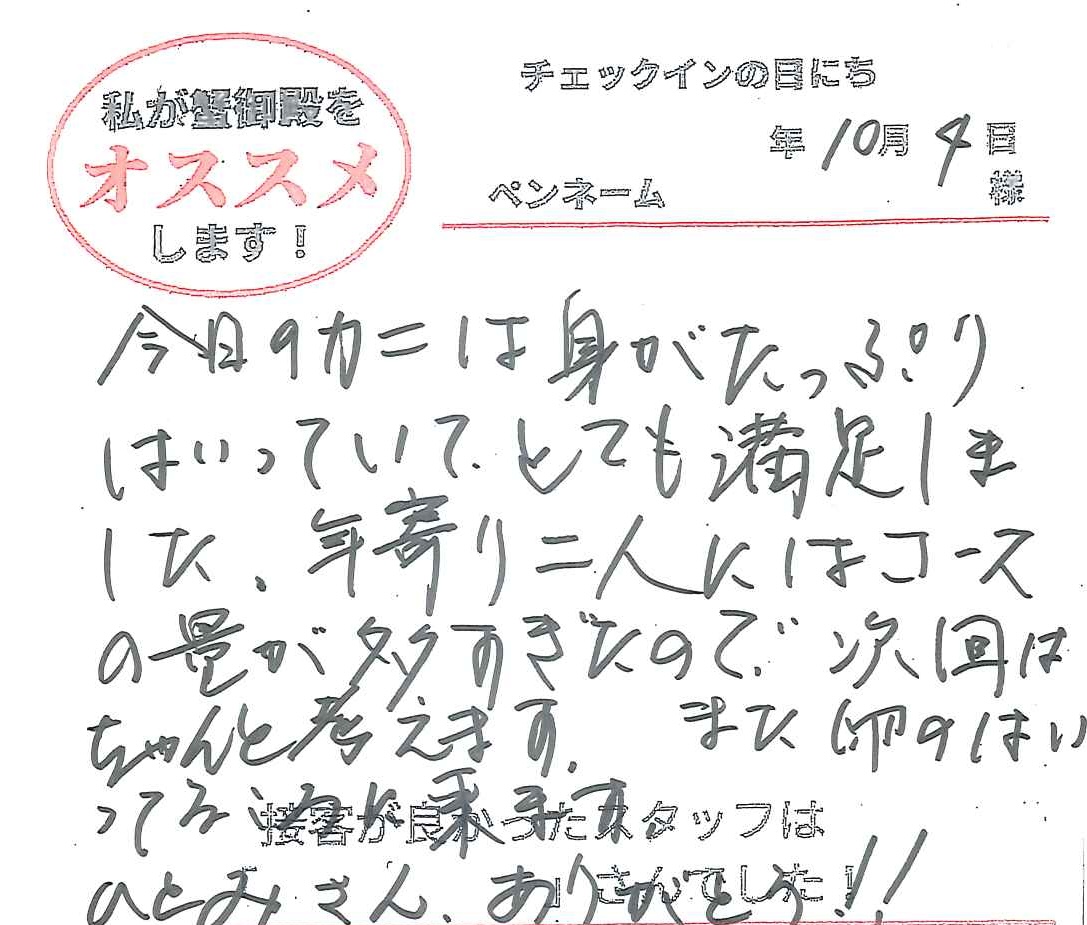 私が蟹御殿を
オススメ
します！
チェックインの日にち
年 10月 4日
ペンネーム 様
今日のカニは身がたっぷり
はいっていて、とても満足しま
した、年寄り二人にはコース
の量が多すぎたので、次回は
ちゃんと考えます。 また卵のはい
ってる 来ます
接客が良かったスタッフは
ひとみさん、ありがとう!!
さんでした！